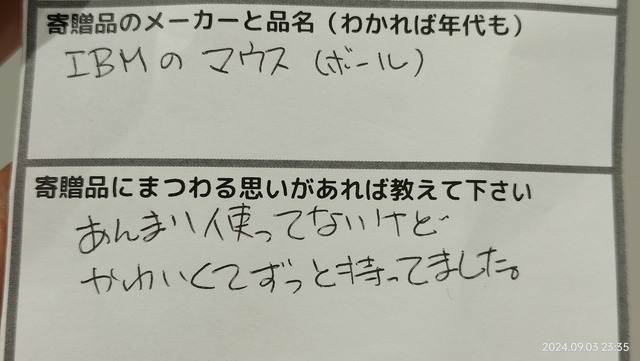 寄贈品のメーカーと品名（わかれば年代も）
IBMの マウス（ボール）
寄贈品にまつわる思いがあれば教えて下さい
あんまり使ってないけど
かわいくてずっと持ってました。
2024.09.03 23:35